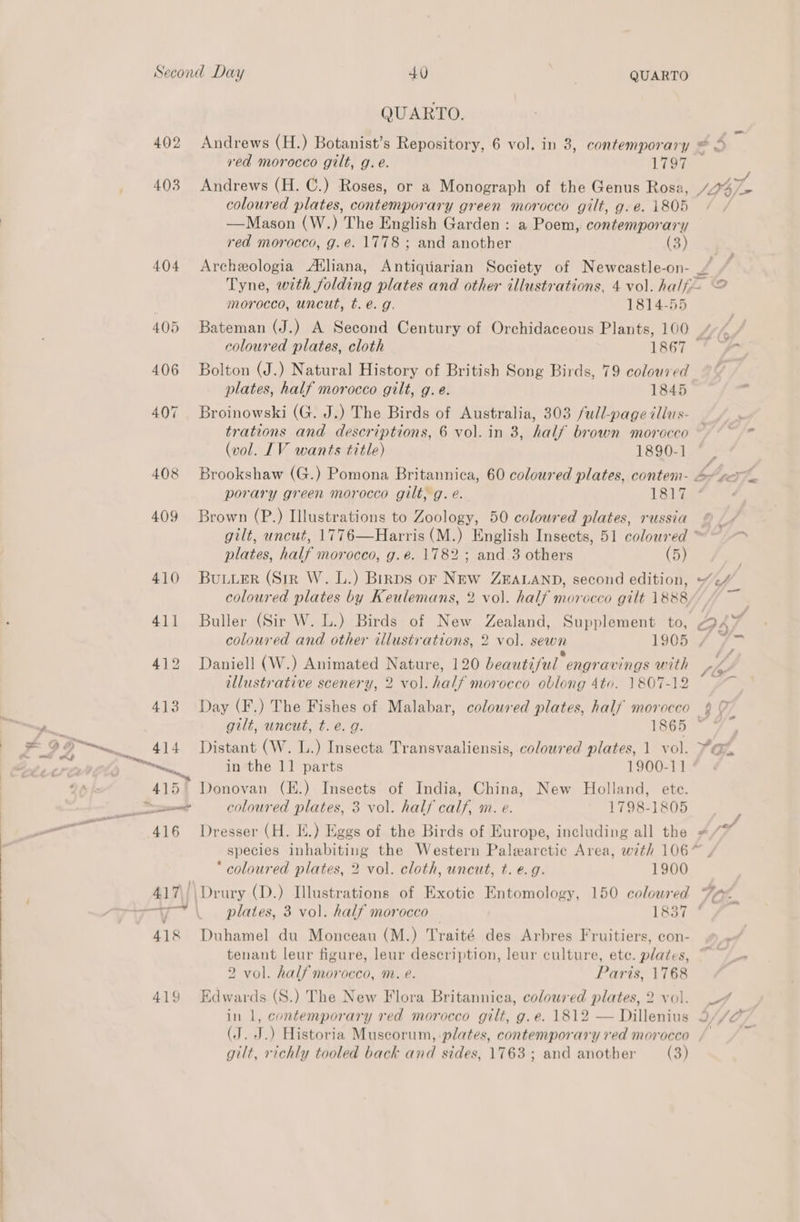 Second Day 40 QUARTO
QUARTO.
402 Andrews (H.) Botanist's Repository, 6 vol. in 3, contemporary
red morocco gilt, g.e. 1797
403 Andrews (H. C.) Roses, or a Monograph of the Genus Rosa,
coloured plates, contemporary green morocco gilt, g.e. 1805
—Mason (W.) The English Garden: a Poem, contemporary
red morocco, g.e. 1778; and another (3)
404 Archæologia Æliana, Antiquarian Society of Newcastle-on-
Tyne, with folding plates and other illustrations, 4 vol. half
morocco, uncut, t. e. g. 1814-55
405 Bateman (J.) A Second Century of Orchidaceous Plants, 100
coloured plates, cloth 1867
406 Bolton (J.) Natural History of British Song Birds, 79 coloured
plates, half morocco gilt, g. e. 1845
407 Broinowski (G. J.) The Birds of Australia, 303 full-page illus-
trations and descriptions, 6 vol. in 3, half brown morocco
(vol. IV wants title) 1890-1
408 Brookshaw (G.) Pomona Britannica, 60 coloured plates, contem-
porary green morocco gilt, g. e. 1817
409 Brown (P.) Illustrations to Zoology, 50 coloured plates, russia
gilt, uncut, 1776—Harris (M.) English Insects, 51 coloured
plates, half morocco, g.e. 1782; and 3 others (5)
410 BULLER (SIR W. L.) BIRDS OF NEW ZEALAND, second edition,
coloured plates by Keulemans, 2 vol. half morocco gilt 1888
411 Buller (Sir W. L.) Birds of New Zealand, Supplement to,
coloured and other illustrations, 2 vol. sewn 1905
412 Daniell (W.) Animated Nature, 120 beautiful engravings with
illustrative scenery, 2 vol. half morocco oblong 4to. 1807-12
413 Day (F.) The Fishes of Malabar, coloured plates, half morocco
gilt, uncut, t. e. g. 1865
414 Distant (W. L.) Insecta Transvaaliensis, coloured plates, 1 vol.
in the 11 parts 1900-11
415 Donovan (E.) Insects of India, China, New Holland, etc.
coloured plates, 3 vol. half calf, m. e. 1798-1805
416 Dresser (H. E.) Eggs of the Birds of Europe, including all the
species inhabiting the Western Palæarctic Area, with 106
coloured plates, 2 vol. cloth, uncut, t. e. g. 1900
417 Drury (D.) Illustrations of Exotic Entomology, 150 coloured
plates, 3 vol. half morocco 1837
418 Duhamel du Monceau (M.) Traité des Arbres Fruitiers, con-
tenant leur figure, leur description, leur culture, etc. plates,
2 vol. half morocco, m. e. Paris, 1768
419 Edwards (S.) The New Flora Britannica, coloured plates, 2 vol.
in 1, contemporary red morocco gilt, g.e. 1812 — Dillenius
(J. J.) Historia Muscorum, plates, contemporary red morocco
gilt, richly tooled back and sides, 1763; and another (3)